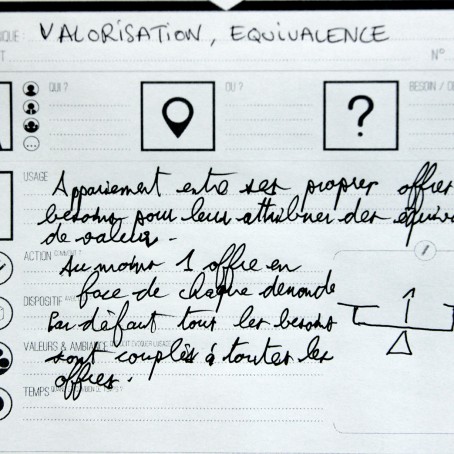 IQUE: VALORISATION, EQUIVALENCE
T N°
QUI ? OU ? BESOIN / D
?
USAGE Appariement entre ses propres offres
besoins pour leur attribuer des équiva
de valeur.
ACTION COMMENT ? Au moins 1 offre en
face de chaque demande
DISPOSITIF Par défaut tous les besoins
VALEURS & AMBIANCE sont couplés à toutes les
offres.
TEMPS